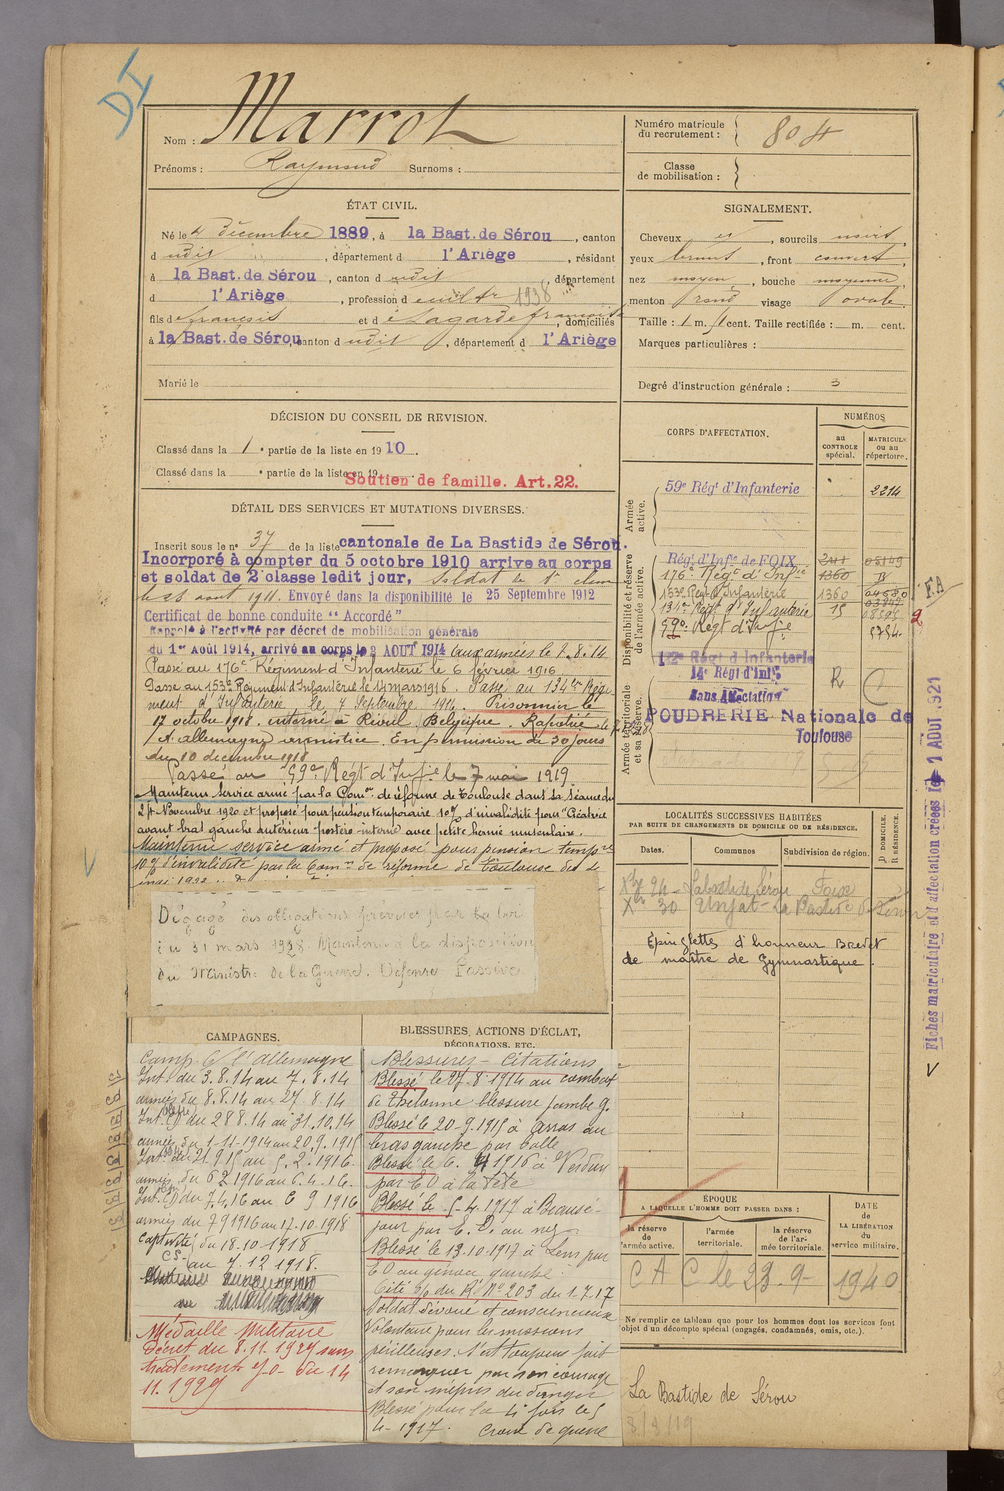 DI
Nom : Marrot
Prénoms : Raymond Surnoms :
Numéro matricule du recrutement : 804
Classe de mobilisation :
ÉTAT CIVIL.
Né le 4 décembre 1889, à la Bast. de Sérou, canton
d udit, département d l'Ariège, résidant
à la Bast. de Sérou, canton d udit, département
d l'Ariège, profession d 1938
fils d e françois et d e Lagarde françoise, domiciliés
à la Bast. de Sérou, canton d udit, département d l'Ariège
Marié le
SIGNALEMENT.
Cheveux , sourcils noirs,
yeux bruns, front couvert,
nez moyen, bouche moyenne,
menton rond visage ovale.
Taille : 1 m. cent. Taille rectifiée : m. cent.
Marques particulières :
Degré d'instruction générale : 3
DÉCISION DU CONSEIL DE REVISION.
Classé dans la 1e partie de la liste en 1910.
Classé dans la e partie de la liste en 19
Soutien de famille. Art. 22.
DÉTAIL DES SERVICES ET MUTATIONS DIVERSES.
Inscrit sous le n° 37 de la liste cantonale de La Bastide de Sérou.
Incorporé à compter du 5 octobre 1910 arrive au corps
et soldat de 2e classe ledit jour, Soldat de 1e classe
le 28 aout 1911. Envoyé dans la disponibilité le 25 Septembre 1912
Certificat de bonne conduite "Accordé"
Rappelé à l'activité par décret de mobilisation générale
du 1er Août 1914, arrivé au corps le 2 AOUT 1914 aux armées le 8.8.14
Passé au 176e Régiment d'Infanterie le 6 février 1916
Passé au 153e Régiment d'Infanterie le 14 mars 1916. Passé au 134ème Régi
ment d'Infanterie le 7 Septembre 1916. Prisonnier le
17 octobre 1918. interné à Rivoil Belgique. Rapatrié le
/ A. allemagne armistice. En permission de 30 jours
du 10 decembre 1918
Passé au 59e Régt d'Infie le 7 mai 1919
Maintenu service armé par la Comon de réforme de Toulouse dans sa séance du
24 Novembre 1920 et proposé pour pension temporaire 10% d'invalidité pour "Cicatrice
avant bras gauche antérieur postéro interne avec petite hernie musculaire.
Maintenu service armé et proposé pour pension tempre
10% d'invalidité par la Comon de réforme de Toulouse du
mai 1922
Dégagé des obligations prévues par la loi
du 31 mars 1928. Maintenu à la disposition
du Ministre de la Guerre. Défense Passive
CORPS D'AFFECTATION.
NUMÉROS
au CONTROLE spécial.
MATRICULE ou au répertoire.
Armée active.
59e Régt d'Infanterie 2214
Disponibilité et réserve de l'armée active.
Régt d'Infie de FOIX 05109
176e Régt d'Infie 1360
153e Régt d'Infanterie 1360
134e Régt d'Infanterie 15
59e Régt d'Infie 5754
FA
2
Armée territoriale et sa réserve.
172e Régt d'Infanterie
14e Régt d'Infie
Sans Affectation R C
POUDRERIE Nationale de
Toulouse
Fiches matriculaire et d'affectation créées le 1 AOUT 1921
LOCALITÉS SUCCESSIVES HABITÉES
PAR SUITE DE CHANGEMENTS DE DOMICILE OU DE RÉSIDENCE.
Dates. Communes Subdivision de région.
D. DOMICILE. R. RÉSIDENCE.
24 - Labastide Sérou Foix
Xre 30 Unjat - La Bastide de Sérou
Epinglettes d'honneur Brevet
de maître de Gymnastique.
CAMPAGNES.
Camp. C/ l'Allemagne
Int. du 3.8.14 au 7.8.14
armées du 8.8.14 au 27.8.14
Int. CD du 28 8.14 au 31.10.14
armées du 1-11-1914 au 20.9.1915
Int. du 21.9.15 au 5.2.1916.
armées du 6 2 1916 au 6.4.16.
Int. CD du 7.4.16 au 6 9 1916
armées du 7 9 1916 au 17.10.1918
Captivité du 18.10.1918
au 7.12 1918.
Médaille Militaire
Décret du 8.11.1929 sans
traitement J.O. du 14
11.1929
BLESSURES, ACTIONS D'ÉCLAT,
DÉCORATIONS, ETC.
Blessures - Citations
Blessé le 27.8.1914 au combat
de Thélonne blessure jambe g.
Blessé le 20-9.1915 à Arras au
bras gauche par balle
Blessé le 6. 4 1916 à Verdun
par EO à la tête
Blessé le 5-4.1917 à Beausé-
jour par E.O. au nez
Blessé le 13.10.1917 à Lens par
EO au genou gauche.
Cité o/o du R. N° 203 du 1.7.17
Soldat dévoué et consciencieux
Volontaire pour les missions
périlleuses. s'est toujours fait
remarquer par son courage
et son mépris du danger
Blessé pour la 4e fois le 5
4-1917. Croix de guerre
ÉPOQUE
A LAQUELLE L'HOMME DOIT PASSER DANS :
la réserve de l'armée active.
l'armée territoriale.
la réserve de l'armée territoriale.
DATE de LA LIBÉRATION du service militaire.
C A C le 23-9- 1940
Ne remplir ce tableau que pour les hommes dont les services font
l'objet d'un décompte spécial (engagés, condamnés, omis, etc.).
La Bastide de Sérou
3/3/19